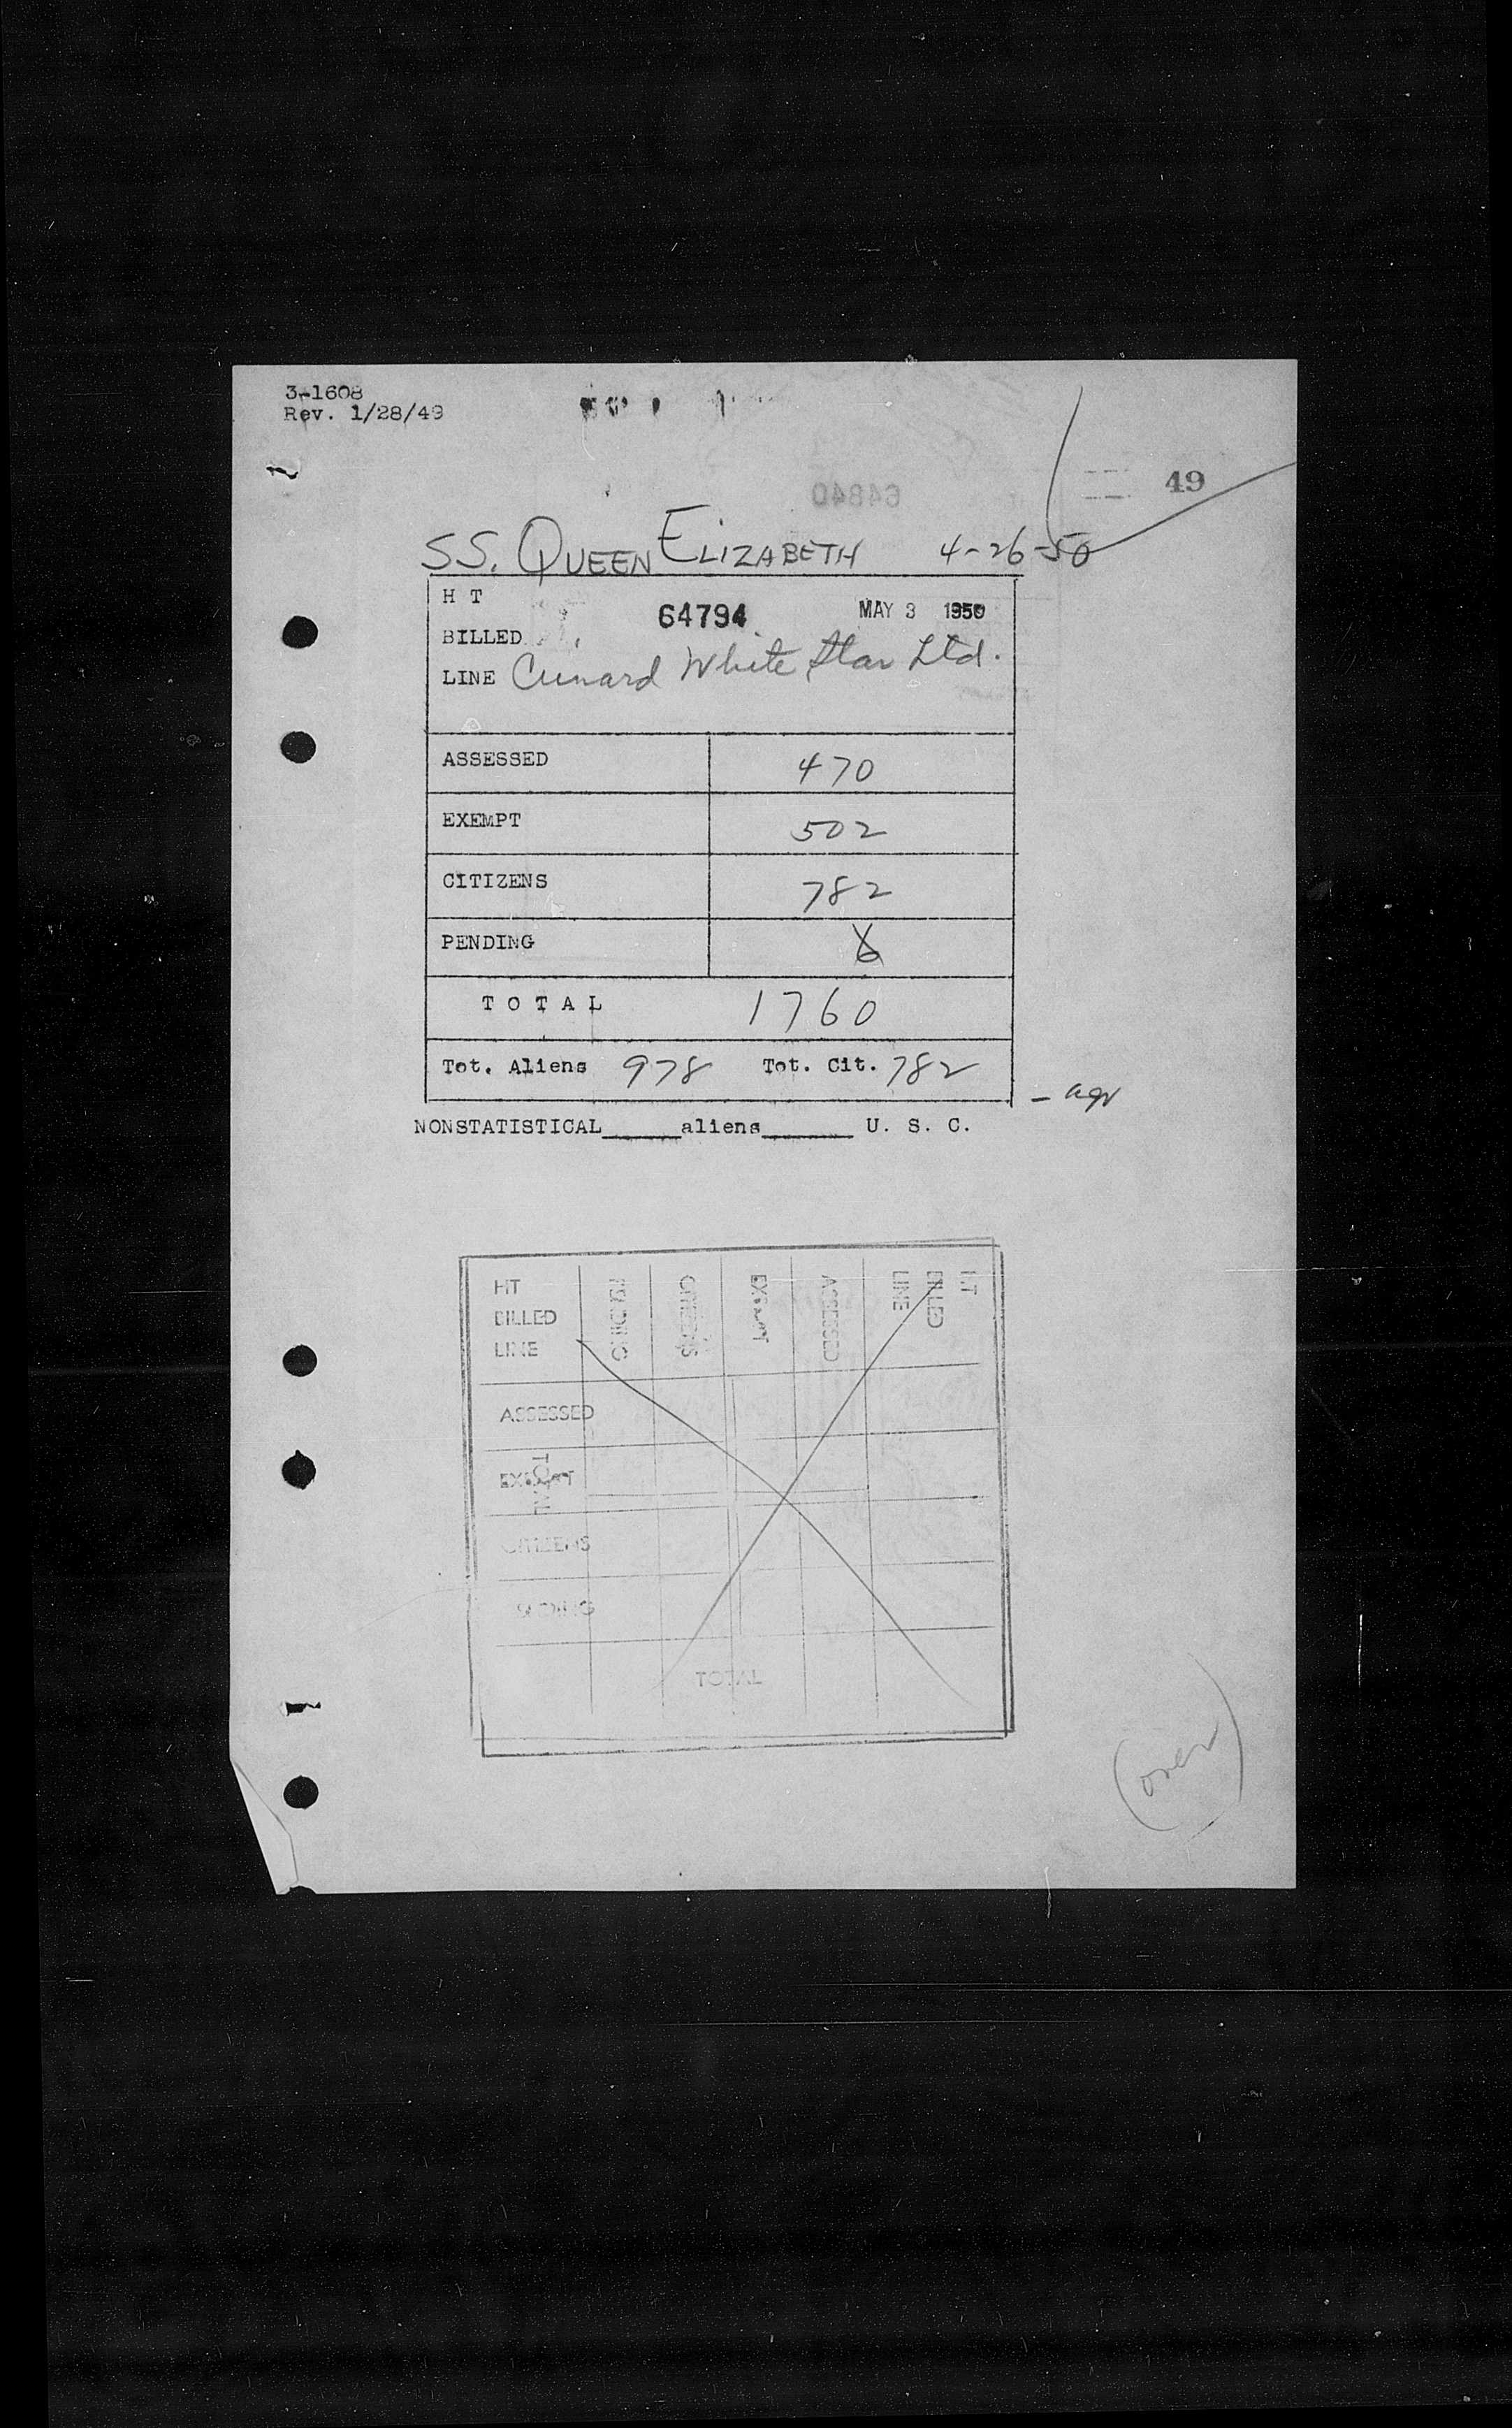 3-1608
Rev. 1/28/49
64840
49
SS. QUEEN ELIZABETH 4-26-50
H T
64794 MAY 3 1950
BILLED
LINE Cunard White Star Ltd.
ASSESSED 470
EXEMPT 502
CITIZENS 782
PENDING 6
TOTAL 1760
Tot. Aliens 978 Tot. Cit. 782
NONSTATISTICAL______aliens_______ U. S. C.
HT
BILLED
LINE
PENDING
CITIZENS
EXEMPT
ASSESSED
LINE
BILLED
HT
ASSESSED
EXEMPT
TOTAL
CITIZENS
PENDING
TOTAL
(over)